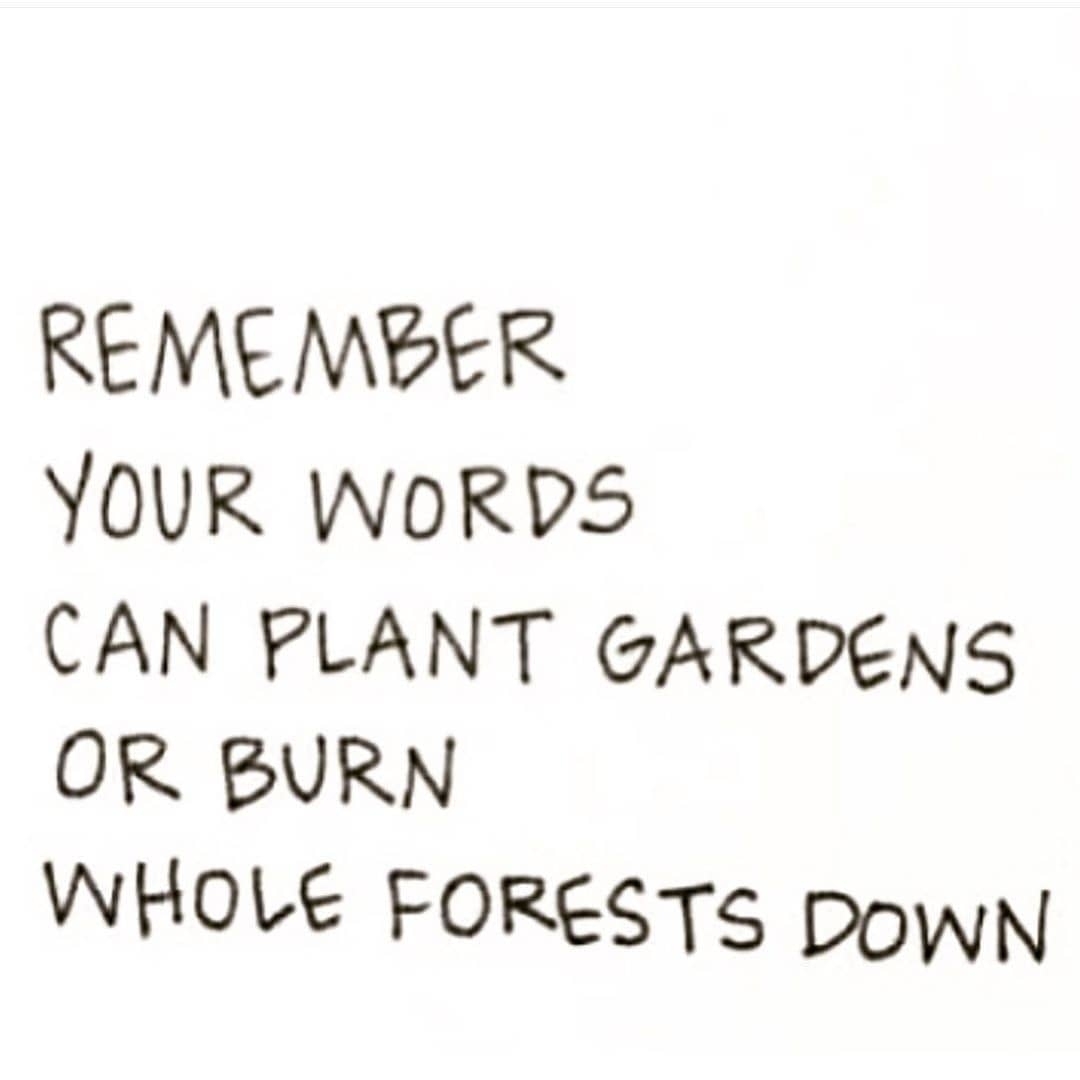 REMEMBER
YOUR WORDS
CAN PLANT GARDENS
OR BURN
WHOLE FORESTS DOWN